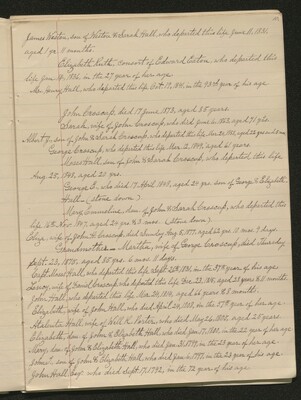 James Weston, son of Weston & Sarah Hall, who departed this life June 8, 1831,
aged 1 yr. 11 months.
Elizabeth Ruth, consort of Edward Easton, who departed this
life Jan. 19, 1836, in the 27 year of her age.
Mr. Henry Hall, who departed this life Oct. 12, 1841, in the 33rd yr of his age.
John Croscup, died 17 June, 1873, aged 85 years.
Sarah, wife of John Croscup, who died June 6, 1852, aged 71 yrs.
Albert J., son of John & Sarah Croscup, who departed this life Mar. 20, 1852, aged 22 years and 8 mos.
George Croscup, who departed this life Mar. 21, 1849, aged 61 years.
Moses Hall, son of John & Sarah Croscup, who departed this life
Aug. 25, 1843, aged 21 yrs.
George E., who died 17 April 1848, aged 24 yrs. son of George & Elizabeth
Hall. (stone down).
Mary Emmeline, dau. of John & Sarah Croscup, who departed this
life 16th Nov. 1847, aged 24 yrs. & 3 mos. (stone down).
wife of H. Croscup, died Sunday Aug. 5, 1877, aged 22 yrs. 11 mos. 9 days.
Grandmother - Martha, wife of George Croscup, died Thursday
Sept. 23, 1878, aged 85 yrs. 6 mos. 11 days.
Capt. Moses Hall, who departed this life Sept. 28th, 1831, in the 37th year of his age.
wife of Daniel Croscup, who departed this life Dec. 23, 1831, aged 23 years & 5 months.
John Hall, who departed this life Mar. 24, 1814, aged 65 years & 5 months.
Elizabeth, wife of John Hall, who died April 20, 1821, in the 57th year of her age.
Malintha Hall, wife of Will. R. Porter, who died May 26, 1822, aged 25 years.
Elizabeth, dau. of John & Elizabeth Hall, who died Jan. 17, 1801, in the 22 year of her age.
Mary, dau. of John & Elizabeth Hall, who died Jan. 31, 1799, in the 23 year of her age.
John Jr., son of John & Elizabeth Hall, who died Jan. 6, 1799, in the 25 year of his age.
John Hall Esq. who died Sept. 17, 1792, in the 72 year of his age.